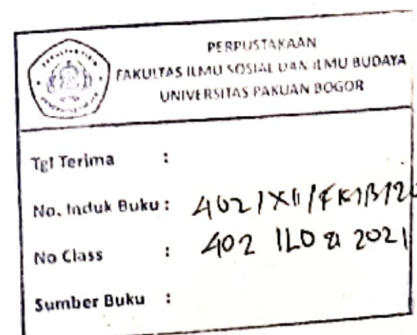 PERPUSTAKAAN
FAKULTAS ILMU SOSIAL DAN ILMU BUDAYA
UNIVERSITAS PAKUAN BOGOR
Tgl Terima :
No. Induk Buku : 402/XII/FKIB/20
No Class : 402 ILO 2021
Sumber Buku :